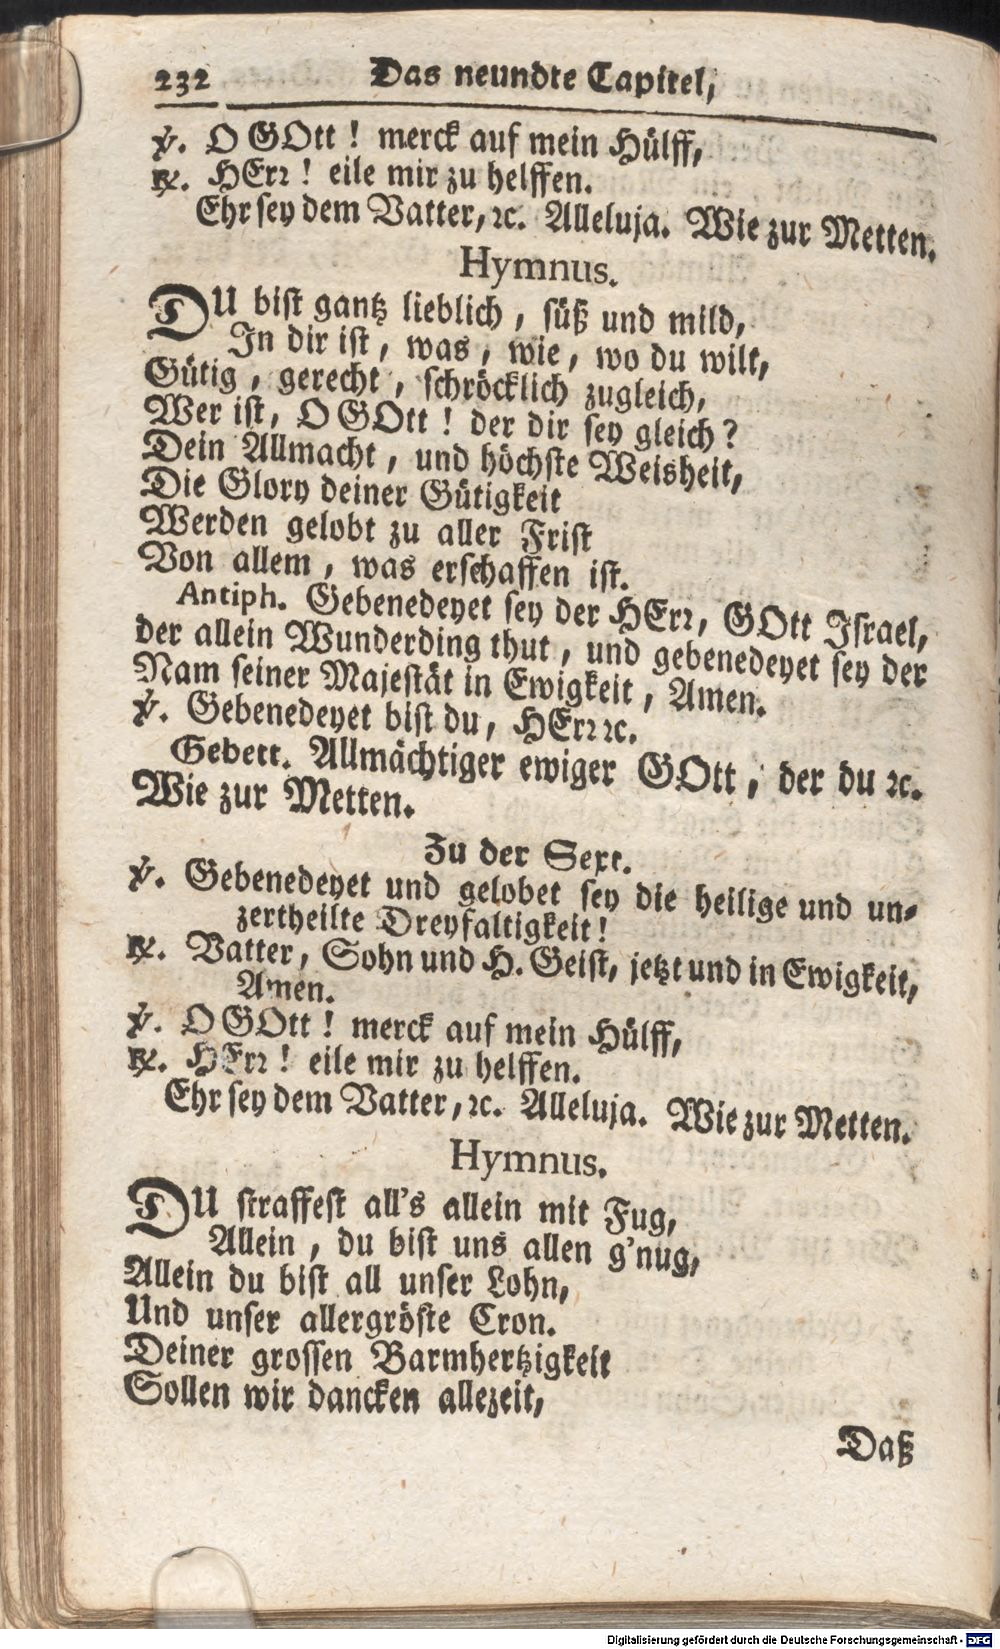 232 Das neundte Capitel,
℣. O GOtt! merck auf mein Hülff,
℟. HErꝛ! eile mir zu helffen.
Ehr sey dem Vatter, ꝛc. Alleluja. Wie zur Metten.
Hymnus.
DU bist gantz lieblich, süß und mild,
In dir ist, was, wie, wo du wilt,
Gütig, gerecht, schröcklich zugleich,
Wer ist, O GOtt! der dir sey gleich?
Dein Allmacht, und höchste Weisheit,
Die Glory deiner Gütigkeit
Werden gelobt zu aller Frist
Von allem, was erschaffen ist.
Antiph. Gebenedeyet sey der HErꝛ, GOtt Israel,
der allein Wunderding thut, und gebenedeyet sey der
Nam seiner Majestät in Ewigkeit, Amen.
℣. Gebenedeyet bist du, HErꝛ ꝛc.
Gebett. Allmächtiger ewiger GOtt, der du ꝛc.
Wie zur Metten.
Zu der Sext.
℣. Gebenedeyet und gelobet sey die heilige und un-
zertheilte Dreyfaltigkeit!
℟. Vatter, Sohn und H. Geist, jetzt und in Ewigkeit,
Amen.
℣. O GOtt! merck auf mein Hülff,
℟. HErꝛ! eile mir zu helffen.
Ehr sey dem Vatter, ꝛc. Alleluja. Wie zur Metten.
Hymnus.
DU straffest all's allein mit Fug,
Allein, du bist uns allen g'nug,
Allein du bist all unser Lohn,
Und unser allergröste Cron.
Deiner grossen Barmhertzigkeit
Sollen wir dancken allezeit,
Daß
Digitalisierung gefördert durch die Deutsche Forschungsgemeinschaft - DFG